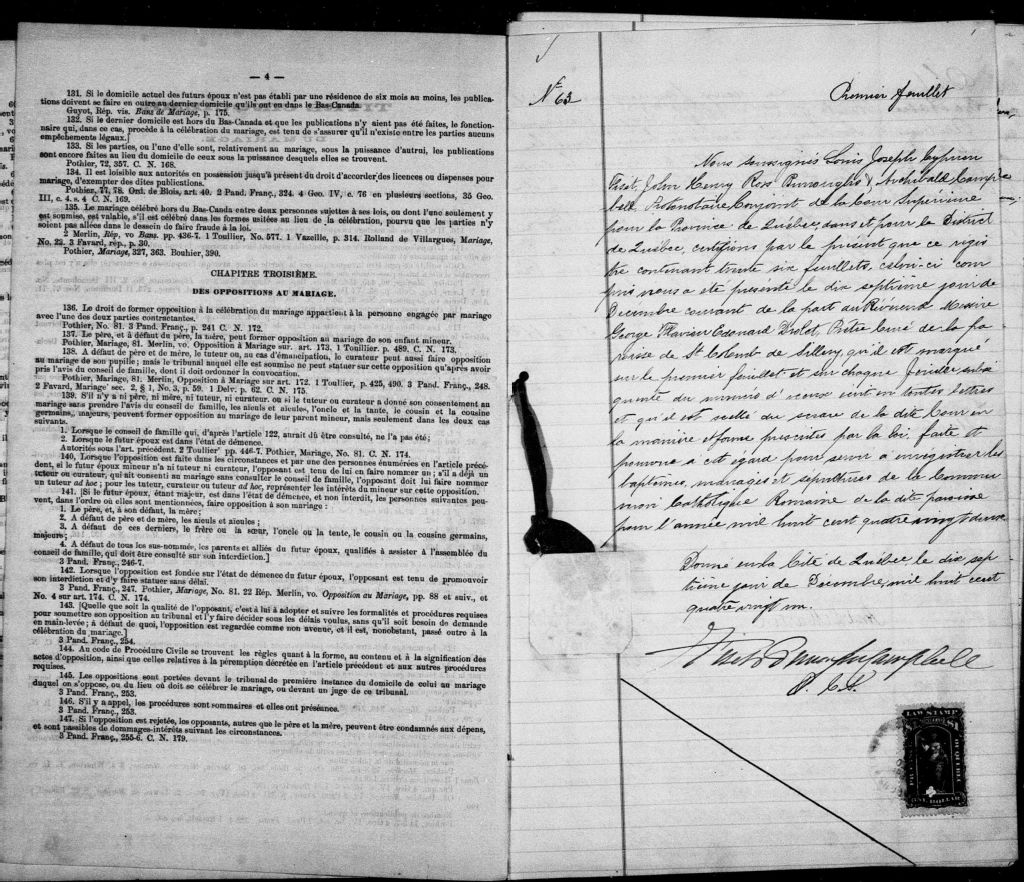 — 4 —
131. Si le domicile actuel des futurs époux n'est pas établi par une résidence de six mois au moins, les publica-
tions doivent se faire en outre au dernier domicile qu'ils ont en dans le Bas-Canada.
Guyot, Rép. vis. Bans de Mariage, p. 175.
132. Si le dernier domicile est hors du Bas-Canada et que les publications n'y aient pas été faites, le fonction-
naire qui, dans ce cas, procède à la célébration du mariage, est tenu de s'assurer qu'il n'existe entre les parties aucuns
empêchements légaux.]
133. Si les parties, ou l'une d'elle sont, relativement au mariage, sous la puissance d'autrui, les publications
sont encore faites au lieu du domicile de ceux sous la puissance desquels elles se trouvent.
Pothier, 72, 357. C. N. 168.
134. Il est loisible aux autorités en possession jusqu'à présent du droit d'accorder des licences ou dispenses pour
mariage, d'exempter des dites publications.
Pothier, 77, 78. Ord. de Blois, art. 40. 2 Pand. Franç., 324. 4 Geo. IV, c. 76 en plusieurs sections, 35 Geo.
III, c. 4. s. 4 C. N. 169.
135. Le mariage célébré hors du Bas-Canda entre deux personnes sujettes à ses lois, ou dont l'une seulement y
est soumise, est valable, s'il est célébré dans les formes usitées au lieu de la célébration, pourvu que les parties n'y
soient pas allées dans le dessein de faire fraude à la loi.
2 Merlin, Rép. vo Bans. pp. 436-7. 1 Toullier, No. 577. 1 Vazeille, p. 314. Rolland de Villargues, Mariage,
No. 22. 3 Favard, rép., p. 30.
Pothier, Mariage, 327, 363. Bouhier, 390.
CHAPITRE TROISIÈME.
DES OPPOSITIONS AU MARIAGE.
136. Le droit de former opposition à la célébration du mariage appartient à la personne engagée par mariage
avec l'une des deux parties contractantes.
Pothier, No. 81. 3 Pand. Franç., p. 241 C. N. 172.
137. Le père, et à défaut de père, la mère, peut former opposition au mariage de son enfant mineur.
Pothier, Mariage, 81. Merlin, vo. Opposition à Mariage sur. art. 173. 1 Tonillier. p. 489. C. N. 173.
138. A défaut de père et de mère, le tuteur ou, au cas d'émancipation, le curateur peut aussi faire opposition
au mariage de son pupille; mais le tribunal auquel elle est soumise ne peut statuer sur cette opposition qu'après avoir
pris l'avis du conseil de famille, dont il doit ordonner la convocation.
Pothier, Mariage, 81. Merlin, Opposition à Mariage sur art. 172. 1 Toullier, p. 425, 490. 3 Pand. Franç., 248.
2 Favard, Mariage sec. 2, § 1, No. 3, p. 59. 1 Delv. p. 62. C. N. 175.
139. S'il n'y a ni père, ni mère, ni tuteur, ni curateur. ou si le tuteur ou curateur a donné son consentement au
mariage sans prendre l'avis du conseil de famille, les aïeuls et aïeules, l'oncle et la tante, le cousin et la cousine
germains, majeurs, peuvent former opposition au mariage de leur parent mineur, mais seulement dans les deux cas
suivants.
1. Lorsque le conseil de famille qui, d'après l'article 122, aurait dû être consulté, ne l'a pas été;
2. Lorsque le futur époux est dans l'état de démence.
Autorités sous l'art. précédent. 2 Toullier pp. 446-7. Pothier, Mariage, No. 81. C. N. 174.
140, Lorsque l'opposition est faite dans les circonstances et par une des personnes énumérées en l'article précé-
dent, si le futur époux mineur n'a ni tuteur ni curateur, l'opposant est tenu de lui en faire nommer un; s'il a déjà un
tuteur ou curateur, qui ait consenti au mariage sans consulter le conseil de famille, l'opposant doit lui faire nommer
un tuteur ad hoc; pour les tuteur, curateur ou tuteur ad hoc, représenter les intérêts du mineur sur cette opposition.
141. [Si le futur époux, étant majeur, est dans l'état de démence, et non interdit, les personnes suivantes peu-
vent, dans l'ordre où elles sont mentionnées, faire opposition à son mariage:
1. Le père, et, à son défaut, la mère;
2. A défaut de père et de mère, les aïeuls et aïeules;
3. A défaut de ces derniers, le frère ou la sœur, l'oncle ou la tante, le cousin ou la cousine germains,
majeurs;
4. A défaut de tous les sus-nommée, les parents et alliés du futur époux, qualifiés à assister à l'assemblée du
conseil de famille, qui doit être consulté sur son interdiction.]
3 Pand. Franç., 246-7.
142. Lorsque l'opposition est fondée sur l'état de démence du futur époux, l'opposant est tenu de promouvoir
son interdiction et d'y faire statuer sans délai.
3 Pand. Franç., 247. Pothier, Mariage, No. 81. 22 Rép. Merlin, vo. Opposition au Mariage, pp. 88 et suiv., et
No. 4 sur art. 174. C. N. 174.
143. [Quelle que soit la qualité de l'opposant, c'est à lui à adopter et suivre les formalités et procédures requises
pour soumettre son opposition au tribunal et l'y faire décider sous les délais voulus, sans qu'il soit besoin de demande
en main-levée; à défaut de quoi, l'opposition est regardée comme non avenue, et il est, nonobstant, passé outre à la
célébration du mariage.]
3 Pand. Franç., 254.
144. Au code de Procédure Civile se trouvent les règles quant à la forme, au contenu et à la signification des
actes d'opposition, ainsi que celles relatives à la péremption décrétée en l'article précédent et aux autres procédures
requises.
145. Les oppositions sont portées devant le tribunal de première instance du domicile de celui au mariage
duquel on s'oppose, ou du lieu où doit se célébrer le mariage, ou devant un juge de ce tribunal.
3 Pand. Franç., 253.
146. S'il y a appel, les procédures sont sommaires et elles ont préséance.
3 Pand. Franç., 253.
147. Si l'opposition est rejetée, les opposants, autres que le père et la mère, peuvent être condamnés aux dépens,
et sont passibles de dommages-intérêts suivant les circonstances.
3 Pand. Franç., 255-6. C. N. 179.
No 63 Premier feuillet
Nous soussignés Louis Joseph Cyprien
Fiset, John Henry Ross Burroughs & Archibald Camp
bell Protonotaire Conjoint de la Cour Superieure
pour la Province de Québec, dans et pour le District
de Québec, certifions par le présent que ce regis
tre contenant trente six feuillets, celui-ci com
pris nous a été presenté le dix septième jour de
Decembre courant de la part du Révérend Messire
George Flavien Edouard Drolet, Prêtre Curé de la pa
roisse de St Colomb de Sillery, qu'il est marqué
sur le premier feuillet et sur chaque feuillet subsé
quente du numero d'iceux écrit en toutes lettres
et qu'il est scellé du sceau de la dite Cour en
la manière et forme prescrites par la loi, faite et
pourvue a cet égard pour servir a enregistrer les
baptêmes, mariages et sépultures de la Commu
nion Catholique Romaine de la dite paroisse
pour l'année mil huit cent quatre vingt deux.
Donné en la Cité de Québec le dix sep
tième jour de Decembre, mil huit cent
quatre vingt un.
Fiset Burroughs Campbell
P. C. S.
LAW STAMP
ONE DOLLAR